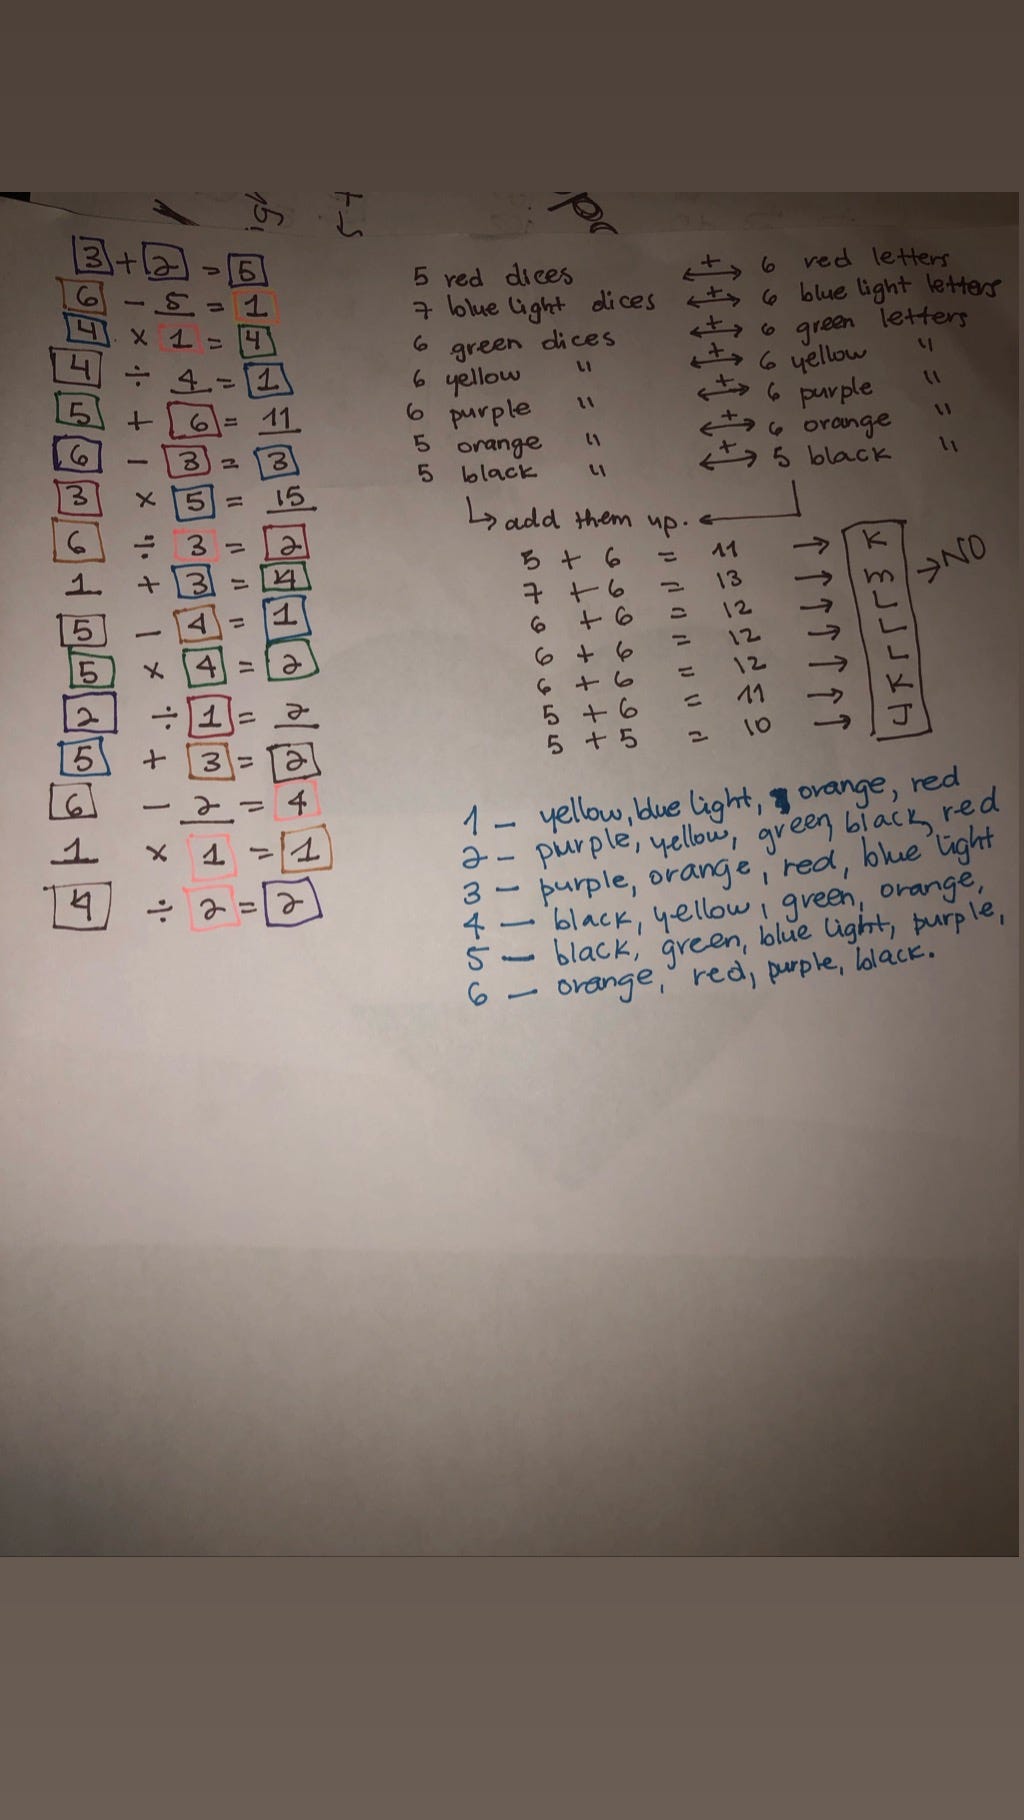 3 + 2 = 5
6 - 5 = 1
4 x 1 = 4
4 ÷ 4 = 1
5 + 6 = 11
6 - 3 = 3
3 x 5 = 15
6 ÷ 3 = 2
1 + 3 = 4
5 - 4 = 1
5 x 4 = 2
2 ÷ 1 = 2
5 + 3 = 2
6 - 2 = 4
1 x 1 = 1
4 ÷ 2 = 2
5 red dices <-+-> 6 red letters
7 blue light dices <-+-> 6 blue light letters
6 green dices <-+-> 6 green letters
6 yellow " <-+-> 6 yellow "
6 purple " <-+-> 6 purple "
5 orange " <-+-> 6 orange "
5 black " <-+-> 5 black "
↳ add them up. ←
5 + 6 = 11 → K
7 + 6 = 13 → m → NO
6 + 6 = 12 → L
6 + 6 = 12 → L
6 + 6 = 12 → L
5 + 6 = 11 → K
5 + 5 = 10 → J
1 - yellow, blue light, orange, red
2 - purple, yellow, green, black, red
3 - purple, orange, red, blue light
4 - black, yellow, green, orange,
5 - black, green, blue light, purple,
6 - orange, red, purple, black.